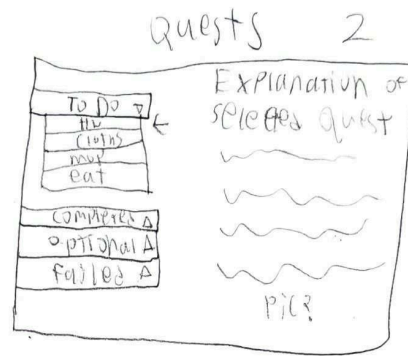 Quests 2
To Do
HW
Cloths
eat
completed
optional
failed
Explanation of
selected quest
Pic?